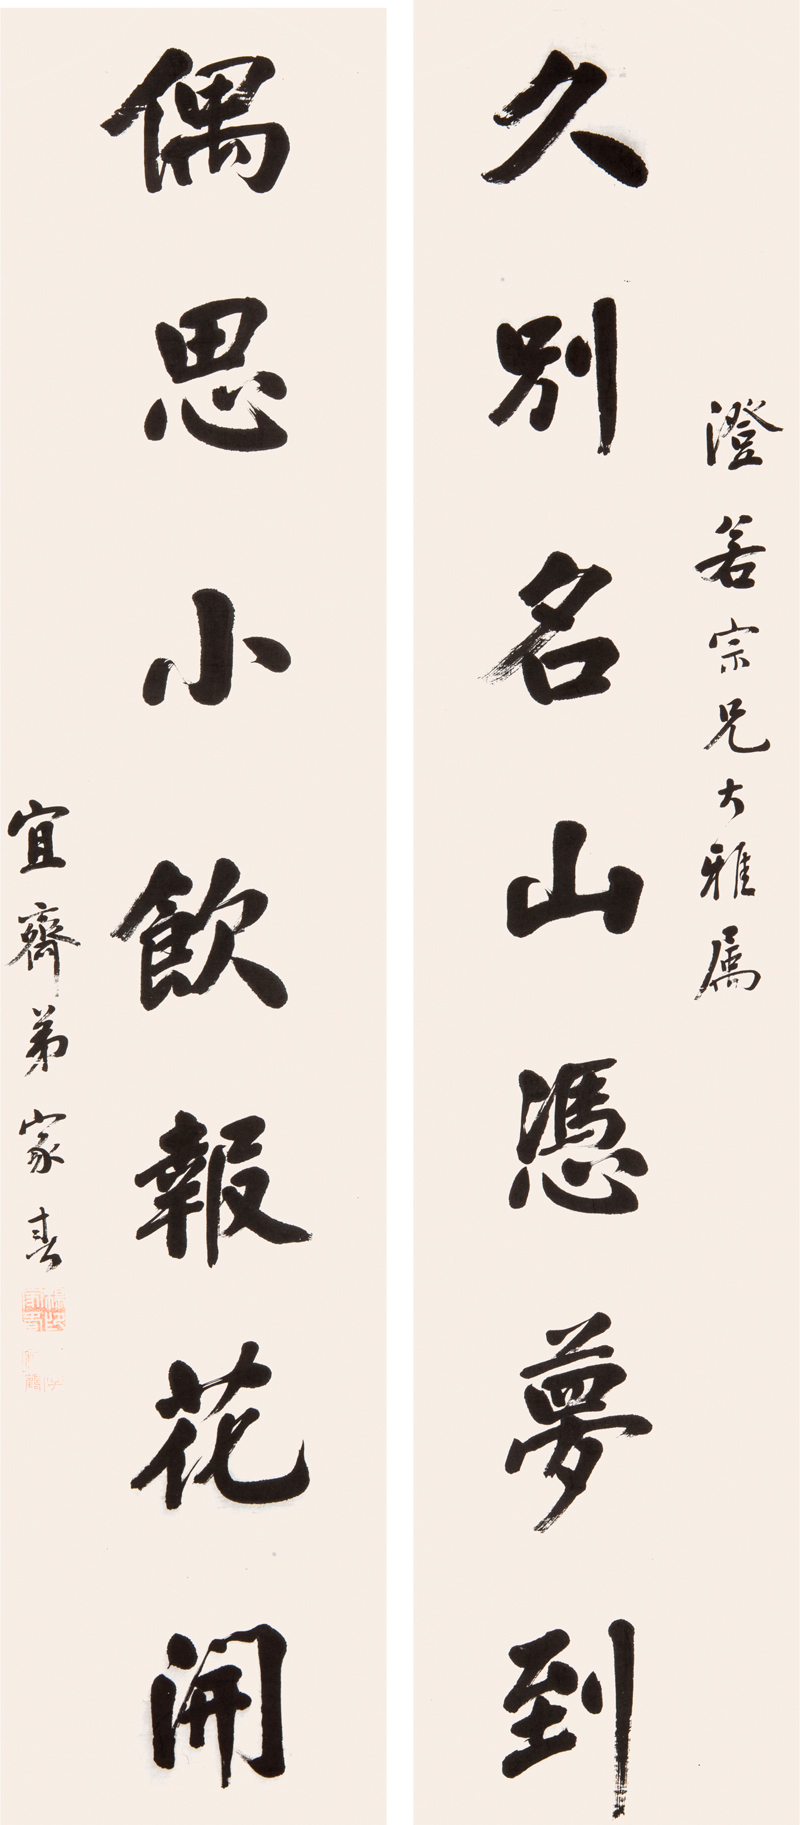 澄若宗兄大雅属
久別名山憑夢到
偶思小飲報花開
宜齋弟家春